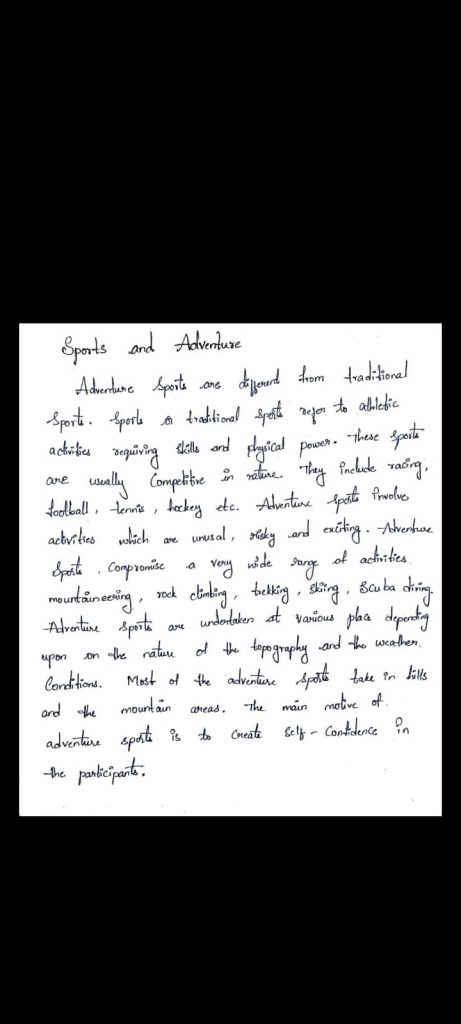 Sports and Adventure
Adventure Sports are differend from traditional
Sports. Sports or traditional Sports refer to athletic
activities requiring skills and physical power. These Sports
are usually Competitive in nature. They include racing,
football, tennis, hockey etc. Adventure Sports Involve
activities which are unusal, risky and exciting. Adventure
Sports. Compromise a very wide range of activities.
mountaineering, rock climbing, trekking, Skiing, Scuba diving.
Adventure Sports are undertaken at various place depending
upon on the nature of the topography and the weather.
Conditions. Most of the adventure Sports take in hills
and the mountain areas. The main motive of
adventure sports is to Create Self-Confidence in
the participants.